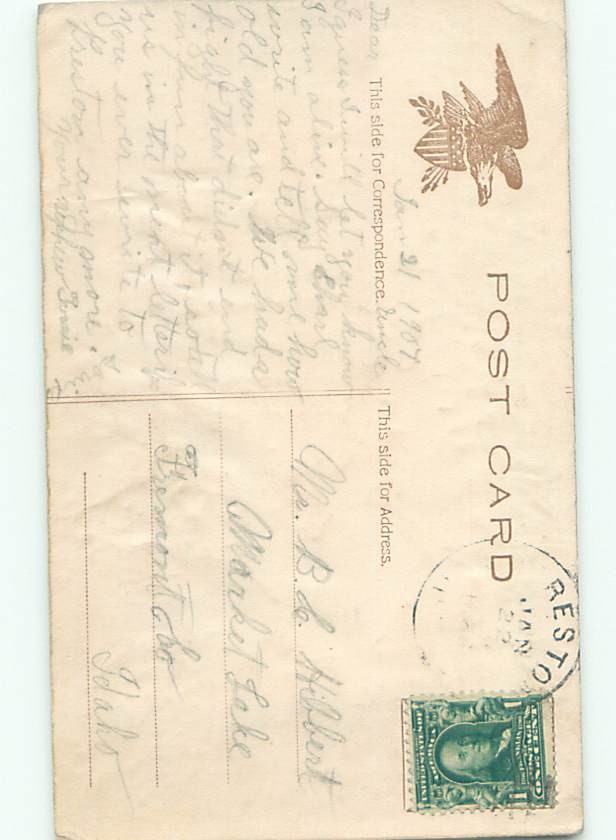 POST CARD
This side for Correspondence.
This side for Address.
Jan 21 1907
Dear Uncle
I guess I will let you know
I am alive. Say Charl
write and tell me how
old you are. We had a
fight that didn't end
in fun about it. tell
us in the next letter if
you ever write to
Preston any more.
Your nephew Ernie
Mr. B. L. Hibbert
Market Lake
Fremont Co
Idaho
RESTO
JAN